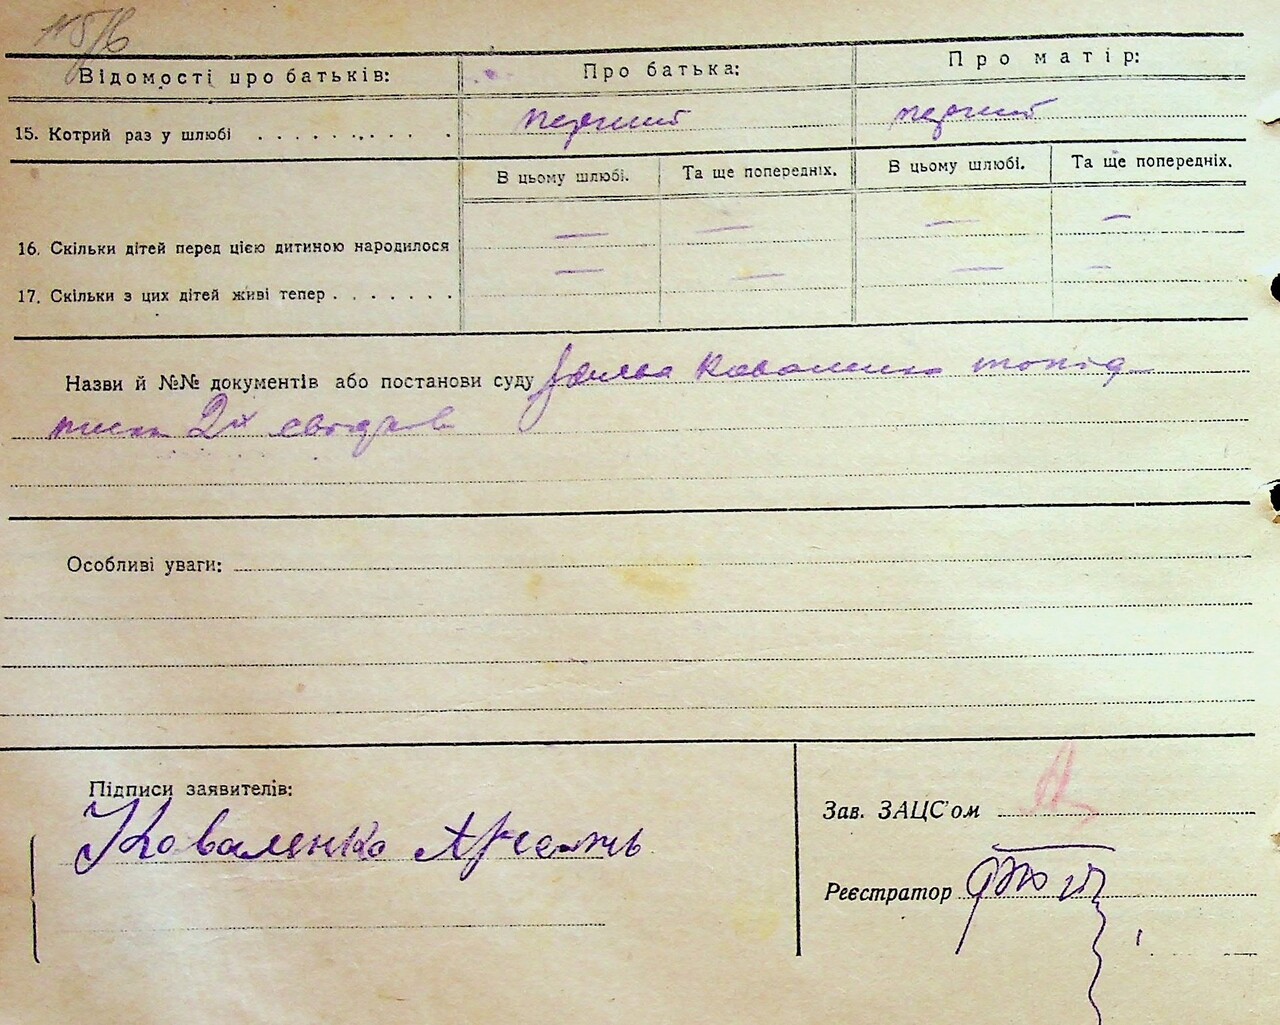 Відомості про батьків: Про батька: Про матір:
15. Котрий раз у шлюбі . . . . . . . . . . перший перший
В цьому шлюбі. Та ще попередніх. В цьому шлюбі. Та ще попередніх.
16. Скільки дітей перед цією дитиною народилося — — — —
17. Скільки з цих дітей живі тепер . . . . . . . — — — —
Назви й №№ документів або постанови суду Коваленко
2х свідків
Особливі уваги:
Підписи заявителів:
Зав. ЗАЦС'ом
Коваленко
Реєстратор